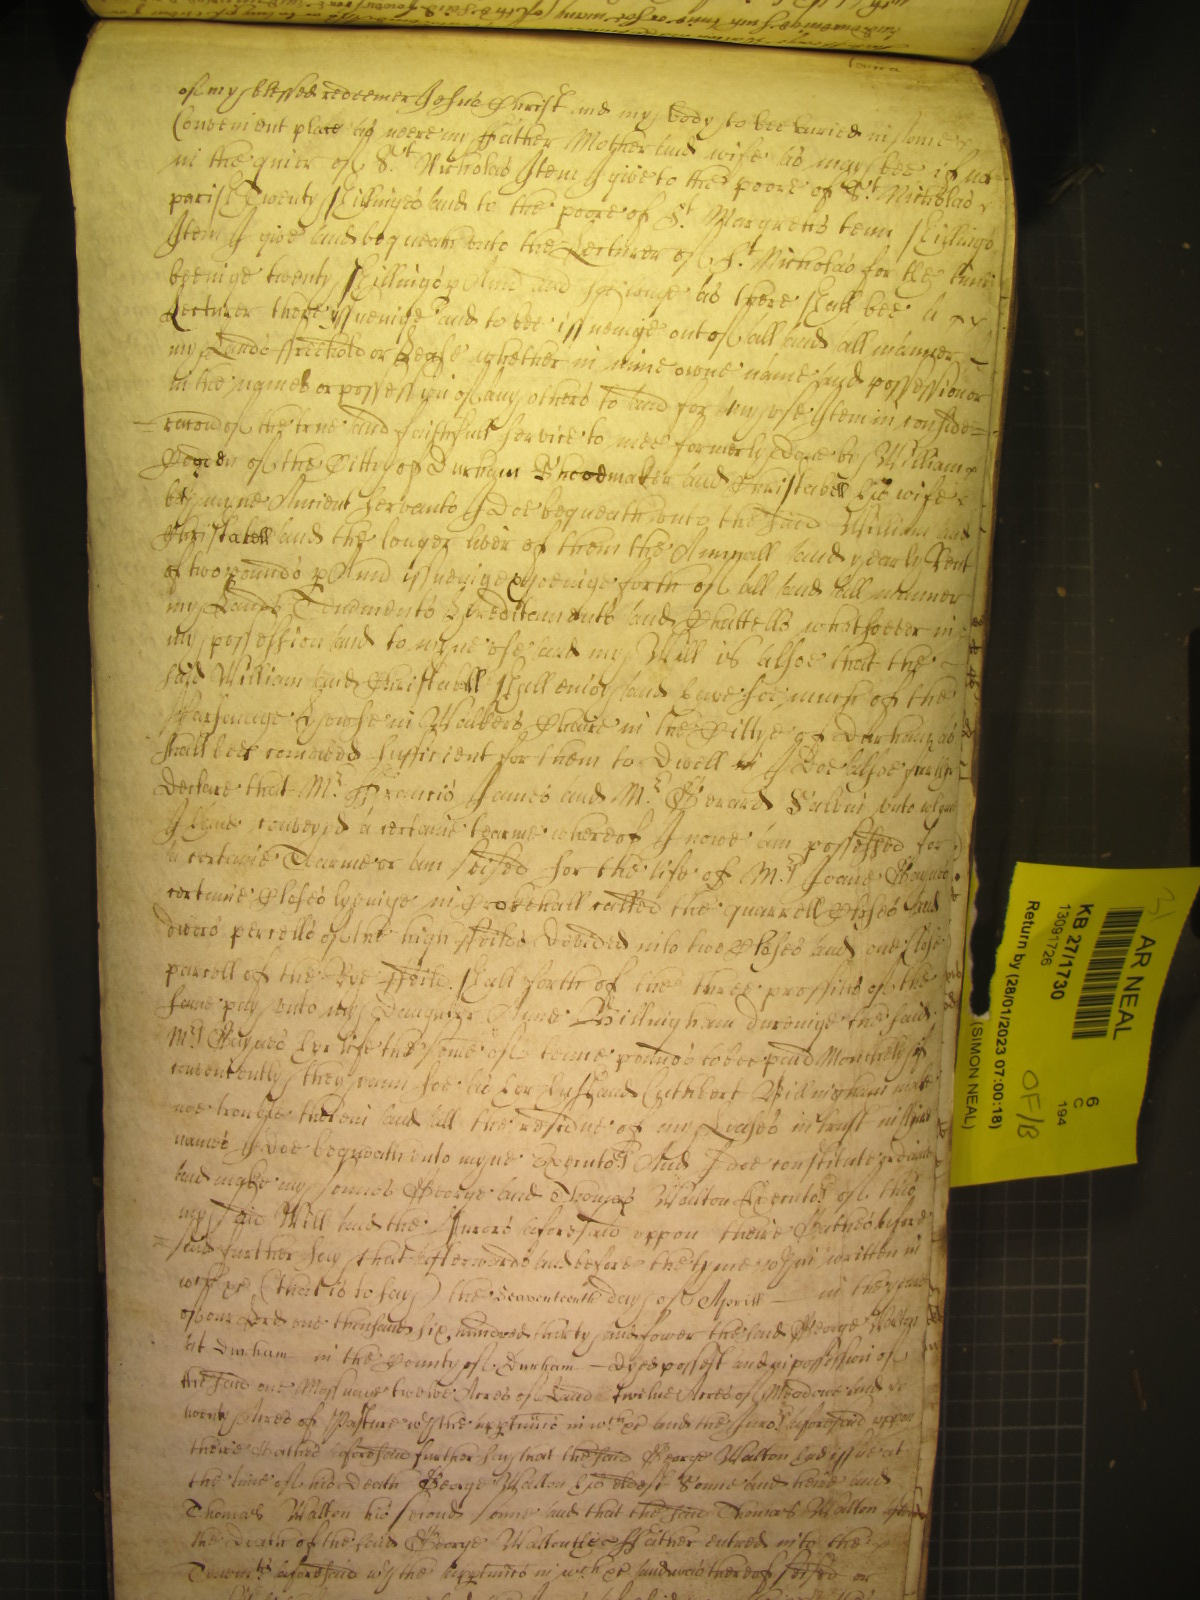 of my blessed redeemer Jesus Christ and my body to bee buried in some
Convenient place as neere my Father Mother and wife as may bee if not
in the quier of St Nicholas Item I give to the poore of St Nicholas
parish Twenty shillinges and to the poore of St Margretts tenn shillings
Item I give and bequeath unto the Lecturer of St Nicholas for the time
beeinge twenty shillings p Ann and soe longe as there shall bee a
Lecturer there issueinge and to bee issueinge out of all and all manner
my Lands Freehold or Lease whether in mine owne name and possession or
in the names or possession of any others to and for my use Item in conside=
=racon of the true and faithfull service to mee formerly done by William
of the Citty of Durham Shooemaker and Christabell his wife
by myne Ancient servants I Doe bequeath unto the said William and
Christabell and the longer liver of them the Annuall and yearly Rent
of two pounds p Ann issueinge goeinge forth of all and all manner
my Lands Tenements Hereditaments and Chattells whatsoever in
my possession and to myne use and my Will is alsoe that the
said William and Christabell shall enioy and have soe much of the
Parsonage howse in Walkers Pheare in the Cittye of Durham as
shall bee sufficient for them to Dwell in I Doe alsoe further
Declare that Mr Francis James and Mr Gerard Salvin unto whom
I have conveyed a certaine tearme whereof I nowe am possessed for
a certaine Tearme or am seised for the life of Mrs Joane Haynes
certaine Closes lyeinge in Crokehall called the quarrell Closes and
divers percells of the high Feilds devided into two Closes and one close
parcell of the Feild shall forth of the three proffitts of the
same pay unto my Daughter Anne Billingham dureinge the said
Mrs Haynes her life the some of tenne pounds to bee paid Monthely if
conveniently they cann soe as her husband Cuthbert Billingham make
noe trouble therein and all the residue of my Leases in trust in
names I Doe bequeath unto myne Executors And I doe constitute
and make my sonnes George and Thomas Walton Executors of this
my said Will and the Jurors aforesaid uppon theire Oathes afore
=said further say that afterwards and before the tyme wthin written in
wch &c (that is to say) the Seaventeenth day of Aprill in the yeare
of our Lord one thousand six hundred thirty and fower the said George Walton
at Durham in the County of Durham dyed possest and in possession of
the said one Messuage twelve Acres of Land twelve Acres of Meadowe and
twenty Acres of Pasture wth the apptenncs in wch &c and the Jurors aforesaid uppon
theire Oathes aforesaid further say that the said George Walton had issue at
the time of his Death George Walton his eldest Sonne and heire and
Thomas Walton his second sonne and that the said Thomas Walton after
the Death of the said George Walton his Father entred into the
Tenemts aforesaid wth the apptenncs in wch &c and was thereof seised
AR NEAL
KB 27/1730
13091726
Return by (28/01/2023 07:00:18)
(SIMON NEAL)
6
C
194
31
OF/B